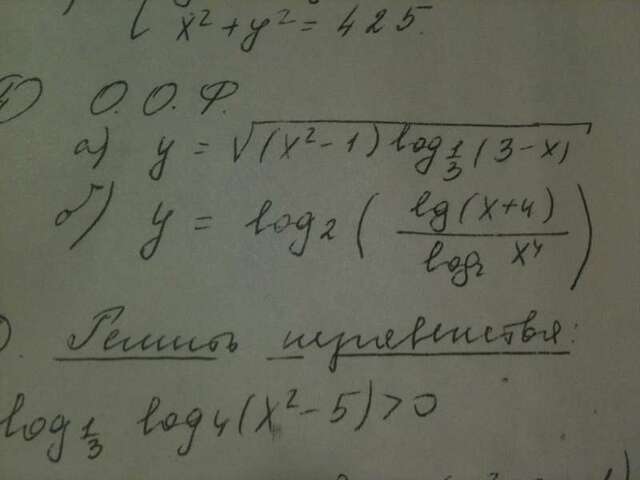 x² + y² = 425
5) О.О.Ф.
а) y = √((x² - 1) log₁/₃(3 - x))
б) y = log₂(lg(x + 4) / log₂ x⁴)
Решить неравенства:
log₁/₃ log₄(x² - 5) > 0